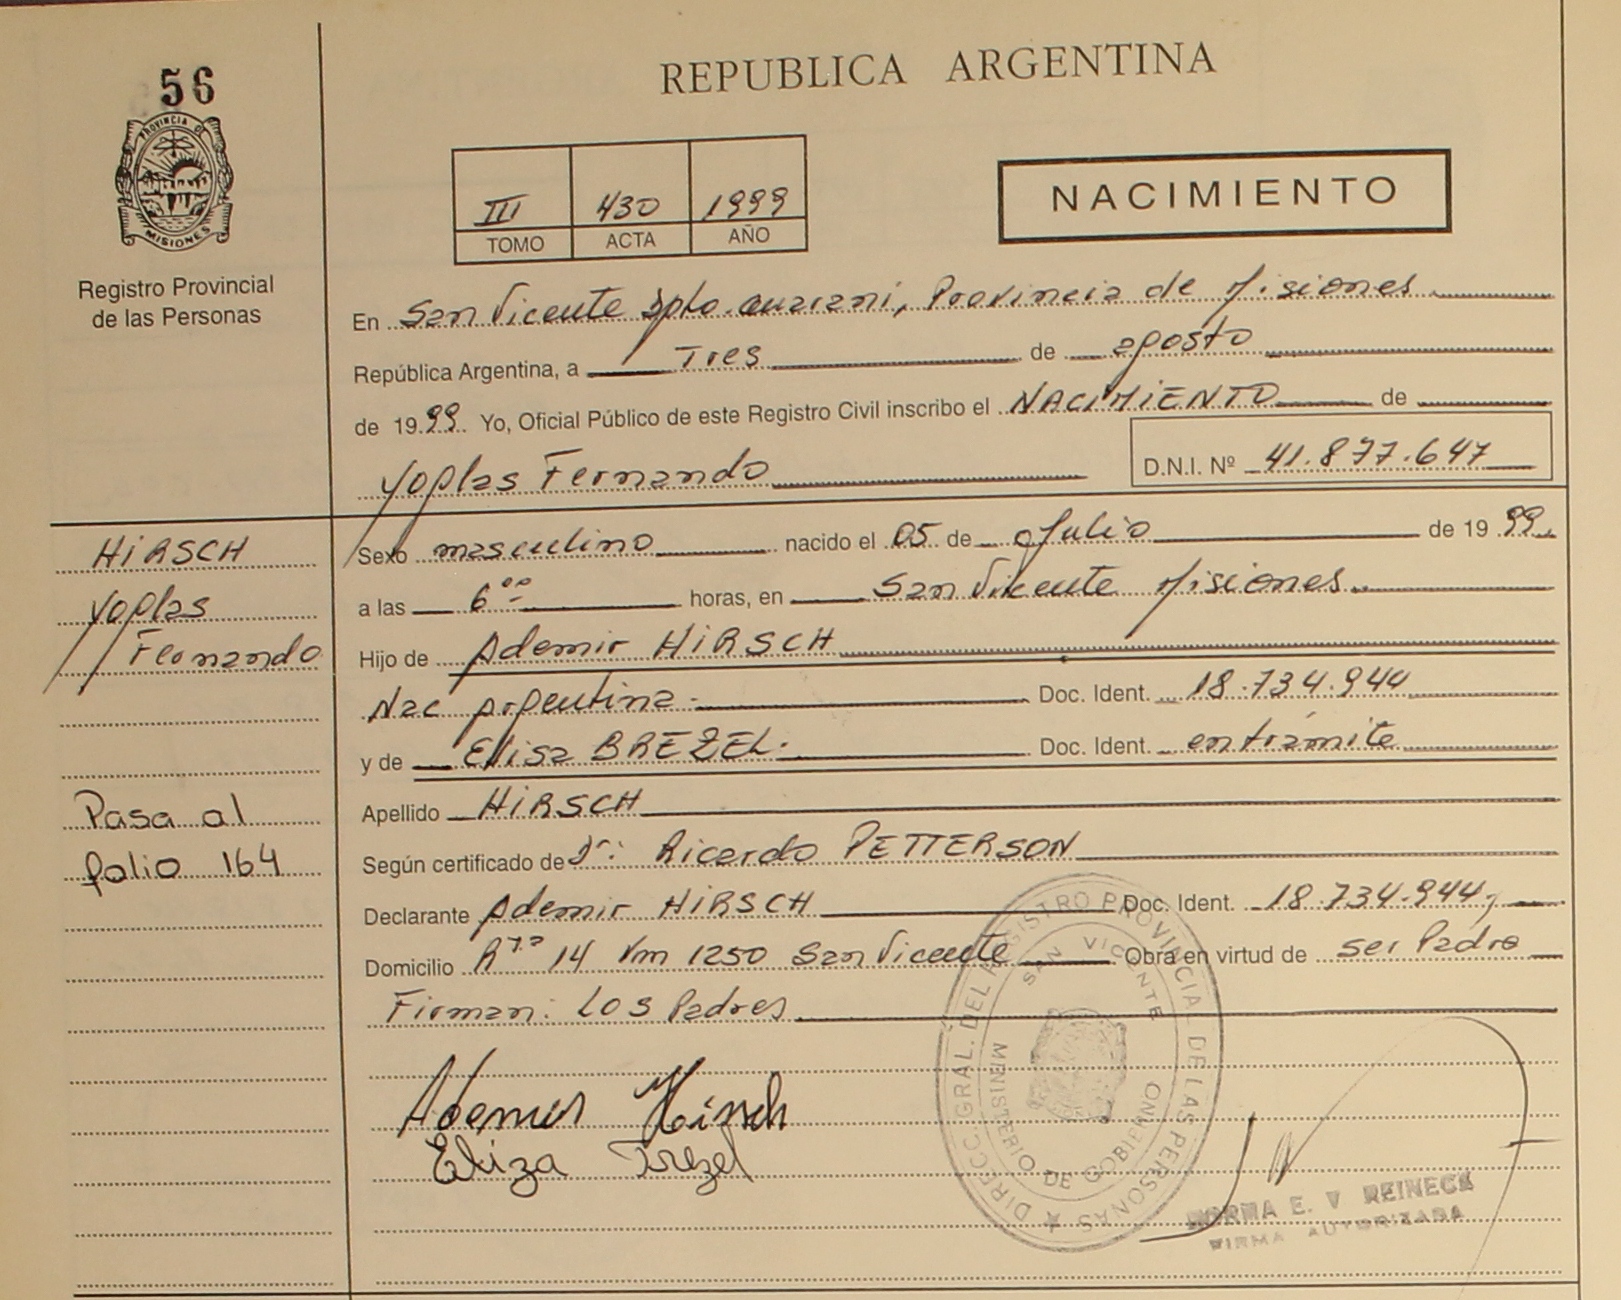 56
PROVINCIA DE
MISIONES
Registro Provincial
de las Personas
REPUBLICA ARGENTINA
III 430 1999
TOMO ACTA AÑO
NACIMIENTO
En San Vicente Dpto. Guarani, Provincia de Misiones
República Argentina, a Tres de agosto
de 1999. Yo, Oficial Público de este Registro Civil inscribo el NACIMIENTO de
Yoglas Fernando
D.N.I. Nº 41.877.647
HIRSCH
Yoglas
Fernando
Pasa al
folio 164
Sexo masculino nacido el 05 de Julio de 1999.
a las 6 00 horas, en San Vicente Misiones.
Hijo de Ademir HIRSCH
Nac Argentina.- Doc. Ident. 18.734.944
y de Elisa BREZEL. Doc. Ident. en trámite
Apellido HIRSCH
Según certificado de Dr: Ricardo PETTERSON
Declarante Ademir HIRSCH Doc. Ident. 18.734.944,
Domicilio Rta 14 Km 1250 San Vicente Obra en virtud de ser Padre
Firman: Los Padres
Ademir Hirsch
Eliza
DIRECC. GRAL. DEL REGISTRO PROVINCIAL DE LAS PERSONAS
SAN VICENTE
MINISTERIO DE GOBIERNO
NORMA E. V. REINECK
FIRMA AUTORIZADA